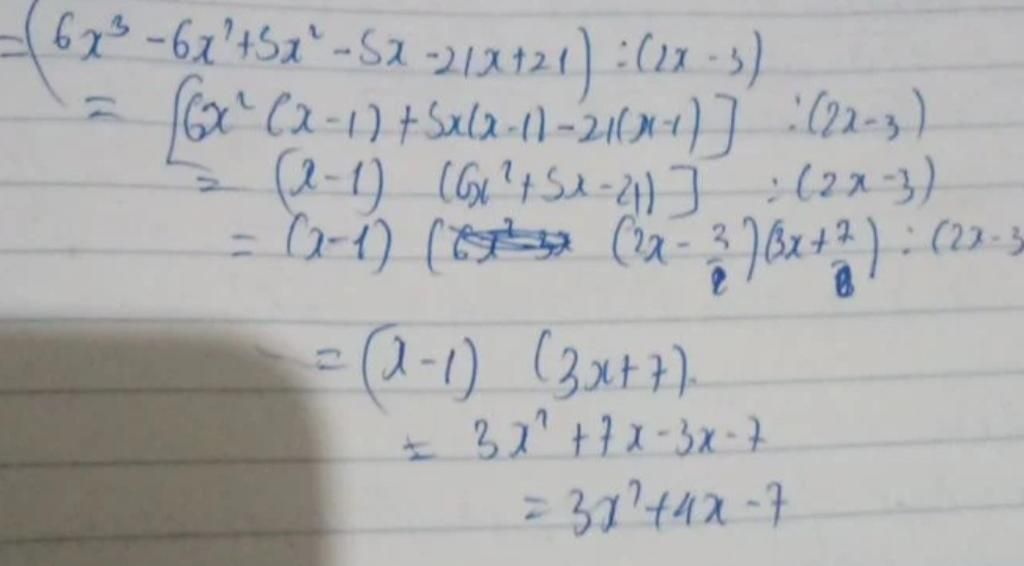 =(6x³ - 6x² + 5x² - 5x - 21x + 21) : (2x - 3)
= [6x² (x - 1) + 5x(x - 1) - 21(x - 1)] : (2x - 3)
= (x - 1) (6x² + 5x - 21)] : (2x - 3)
= (x - 1) ( (2x - 3)(3x + 7) : (2x - 3
= (x - 1) (3x + 7).
= 3x² + 7x - 3x - 7
= 3x² + 4x - 7